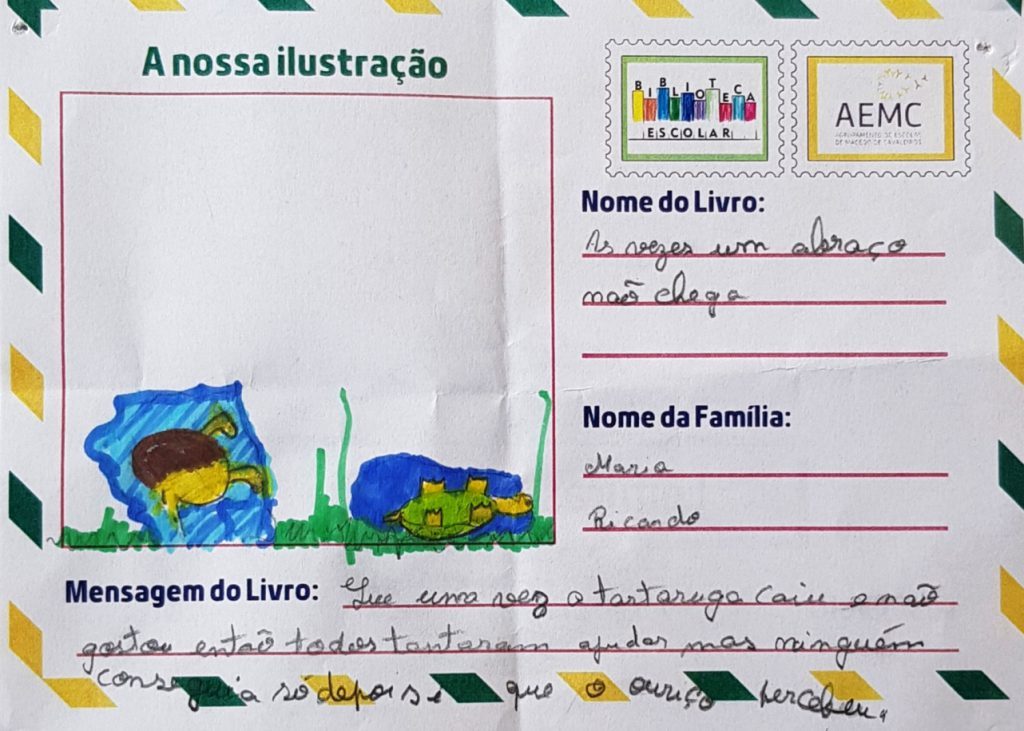 A nossa ilustração
BIBLIOTECA
ESCOLAR
AEMC
AGRUPAMENTO DE ESCOLAS
DE MACEDO DE CAVALEIROS
Nome do Livro:
As vezes um abraço
naõ chega
Nome da Família:
Maria
Ricardo
Mensagem do Livro: Que uma vez a tartaruga caiu e não
gostou entaõ todos tentaram ajudar mas ninguém
conseguia só depois é que o ouriço percebeu.